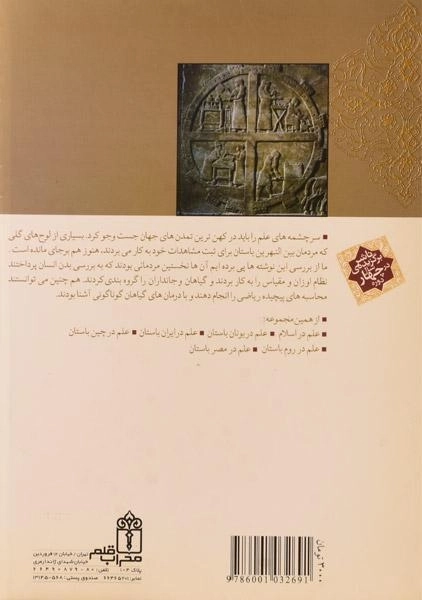 ■ سرچشمه های علم را باید در کهن ترین تمدن های جهان جست وجو کرد. بسیاری از لوح‌های گلی
که مردمان بین النهرین باستان برای ثبت مشاهدات خود به کار می بردند، هنوز هم برجای مانده است.
ما از بررسی این نوشته ها پی برده ایم آن ها نخستین مردمانی بودند که به بررسی بدن انسان پرداختند
نظام اوزان و مقیاس را به کار بردند و گیاهان و جانداران را گروه بندی کردند. هم چنین می توانستند
محاسبه های پیچیده ریاضی را انجام دهند و با درمان های گیاهان گوناگونی آشنا بودند.
■ از همین مجموعه:
■ علم در اسلام ■ علم در یونان باستان ■ علم در ایران باستان ■ علم در چین باستان
■ علم در روم باستان ■ علم در مصر باستان
ناشر
برگزیده
در چهار
دوره
محراب قلم
تهران / خیابان ۱۲ فروردین
خیابان شهدای ژاندارمری
پلاک ۱۰۴ تلفن: ۸۰-۶۶۴۹۰۸۷۹
نمابر: ۶۶۴۶۵۲۰۱ صندوق پستی: ۵۶۸-۱۳۱۴۵
9 786001 032691
۳۰۰۰ تومان